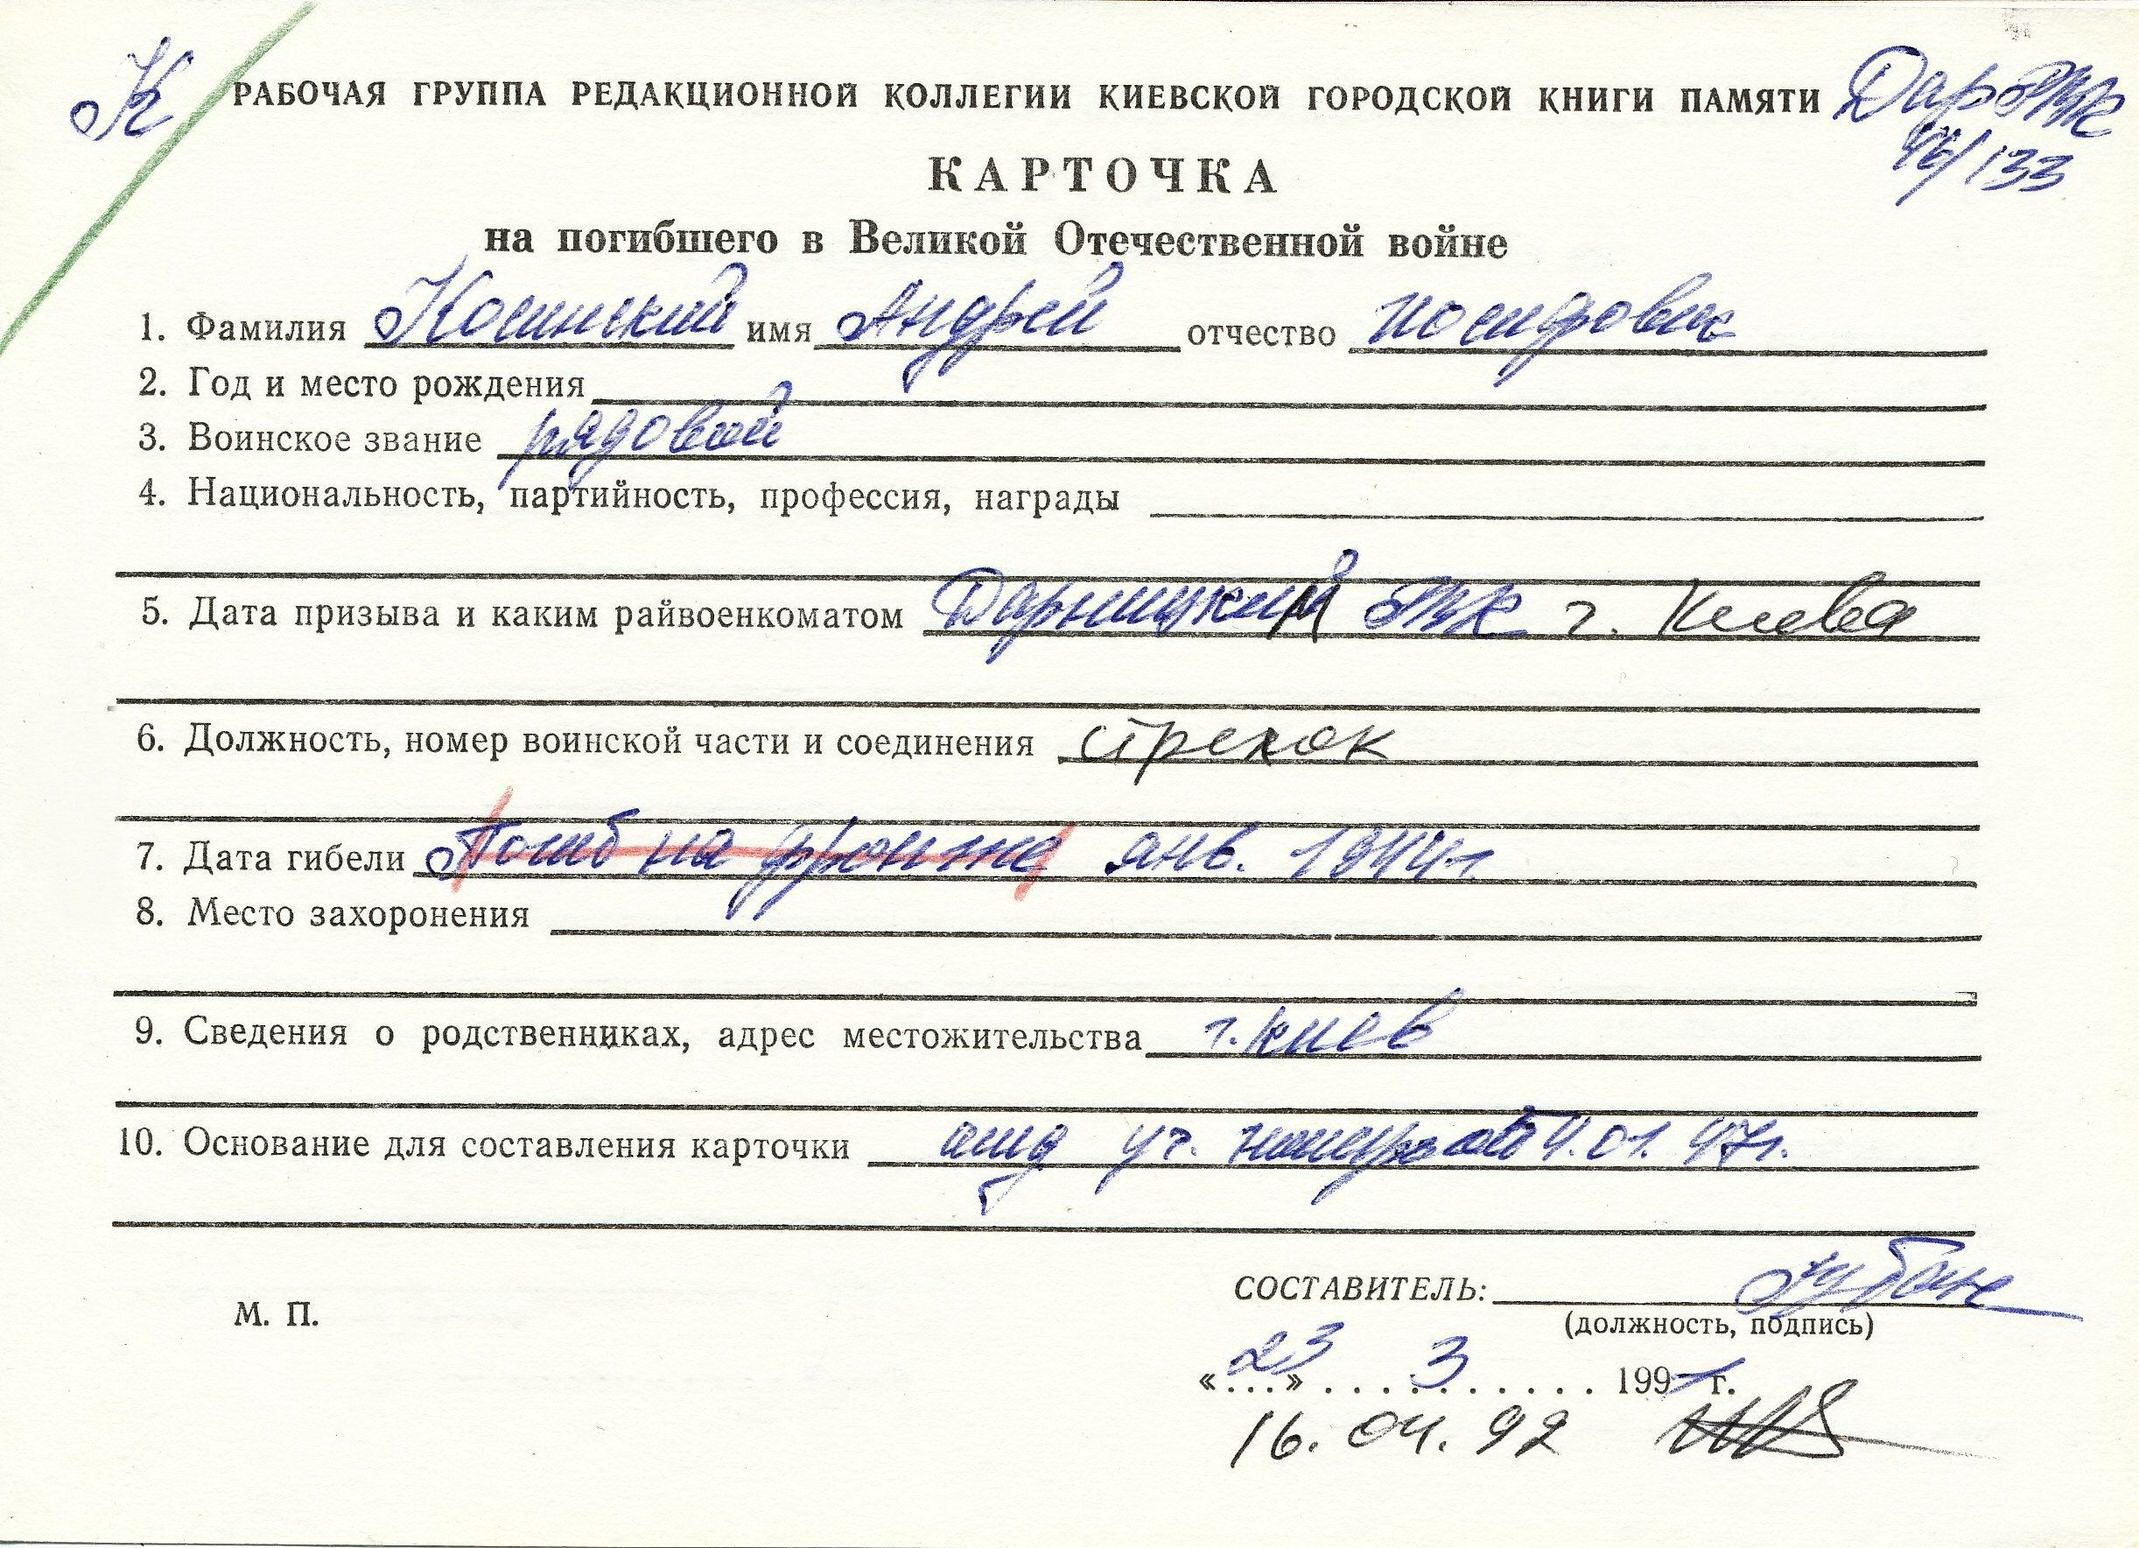 К РАБОЧАЯ ГРУППА РЕДАКЦИОННОЙ КОЛЛЕГИИ КИЕВСКОЙ ГОРОДСКОЙ КНИГИ ПАМЯТИ Дар РВК
46/133
КАРТОЧКА
на погибшего в Великой Отечественной войне
1. Фамилия Косинский имя Андрей отчество иосифович
2. Год и место рождения
3. Воинское звание рядовой
4. Национальность, партийность, профессия, награды
5. Дата призыва и каким райвоенкоматом Дарницким РВК г. Киева
6. Должность, номер воинской части и соединения стрелок
7. Дата гибели Погиб на фронте янв. 1944г.
8. Место захоронения
9. Сведения о родственниках, адрес местожительства г. Киев
10. Основание для составления карточки уч. 4.01.47г.
М. П.
СОСТАВИТЕЛЬ:
(должность, подпись)
«23» 3 1991 г.
16.04.92